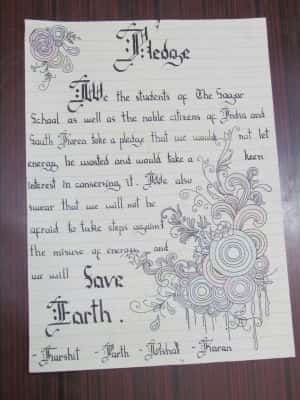 Pledge
We the students of The Sagar
School as well as the noble citizens of India and
South Korea take a pledge that we would not let
energy be wasted and would take a keen
interest in conserving it. We also
swear that we will not be
afraid to take steps against
the misuse of energy and
we will Save
Earth.
- Harshit - Parth - Vishal - Karan